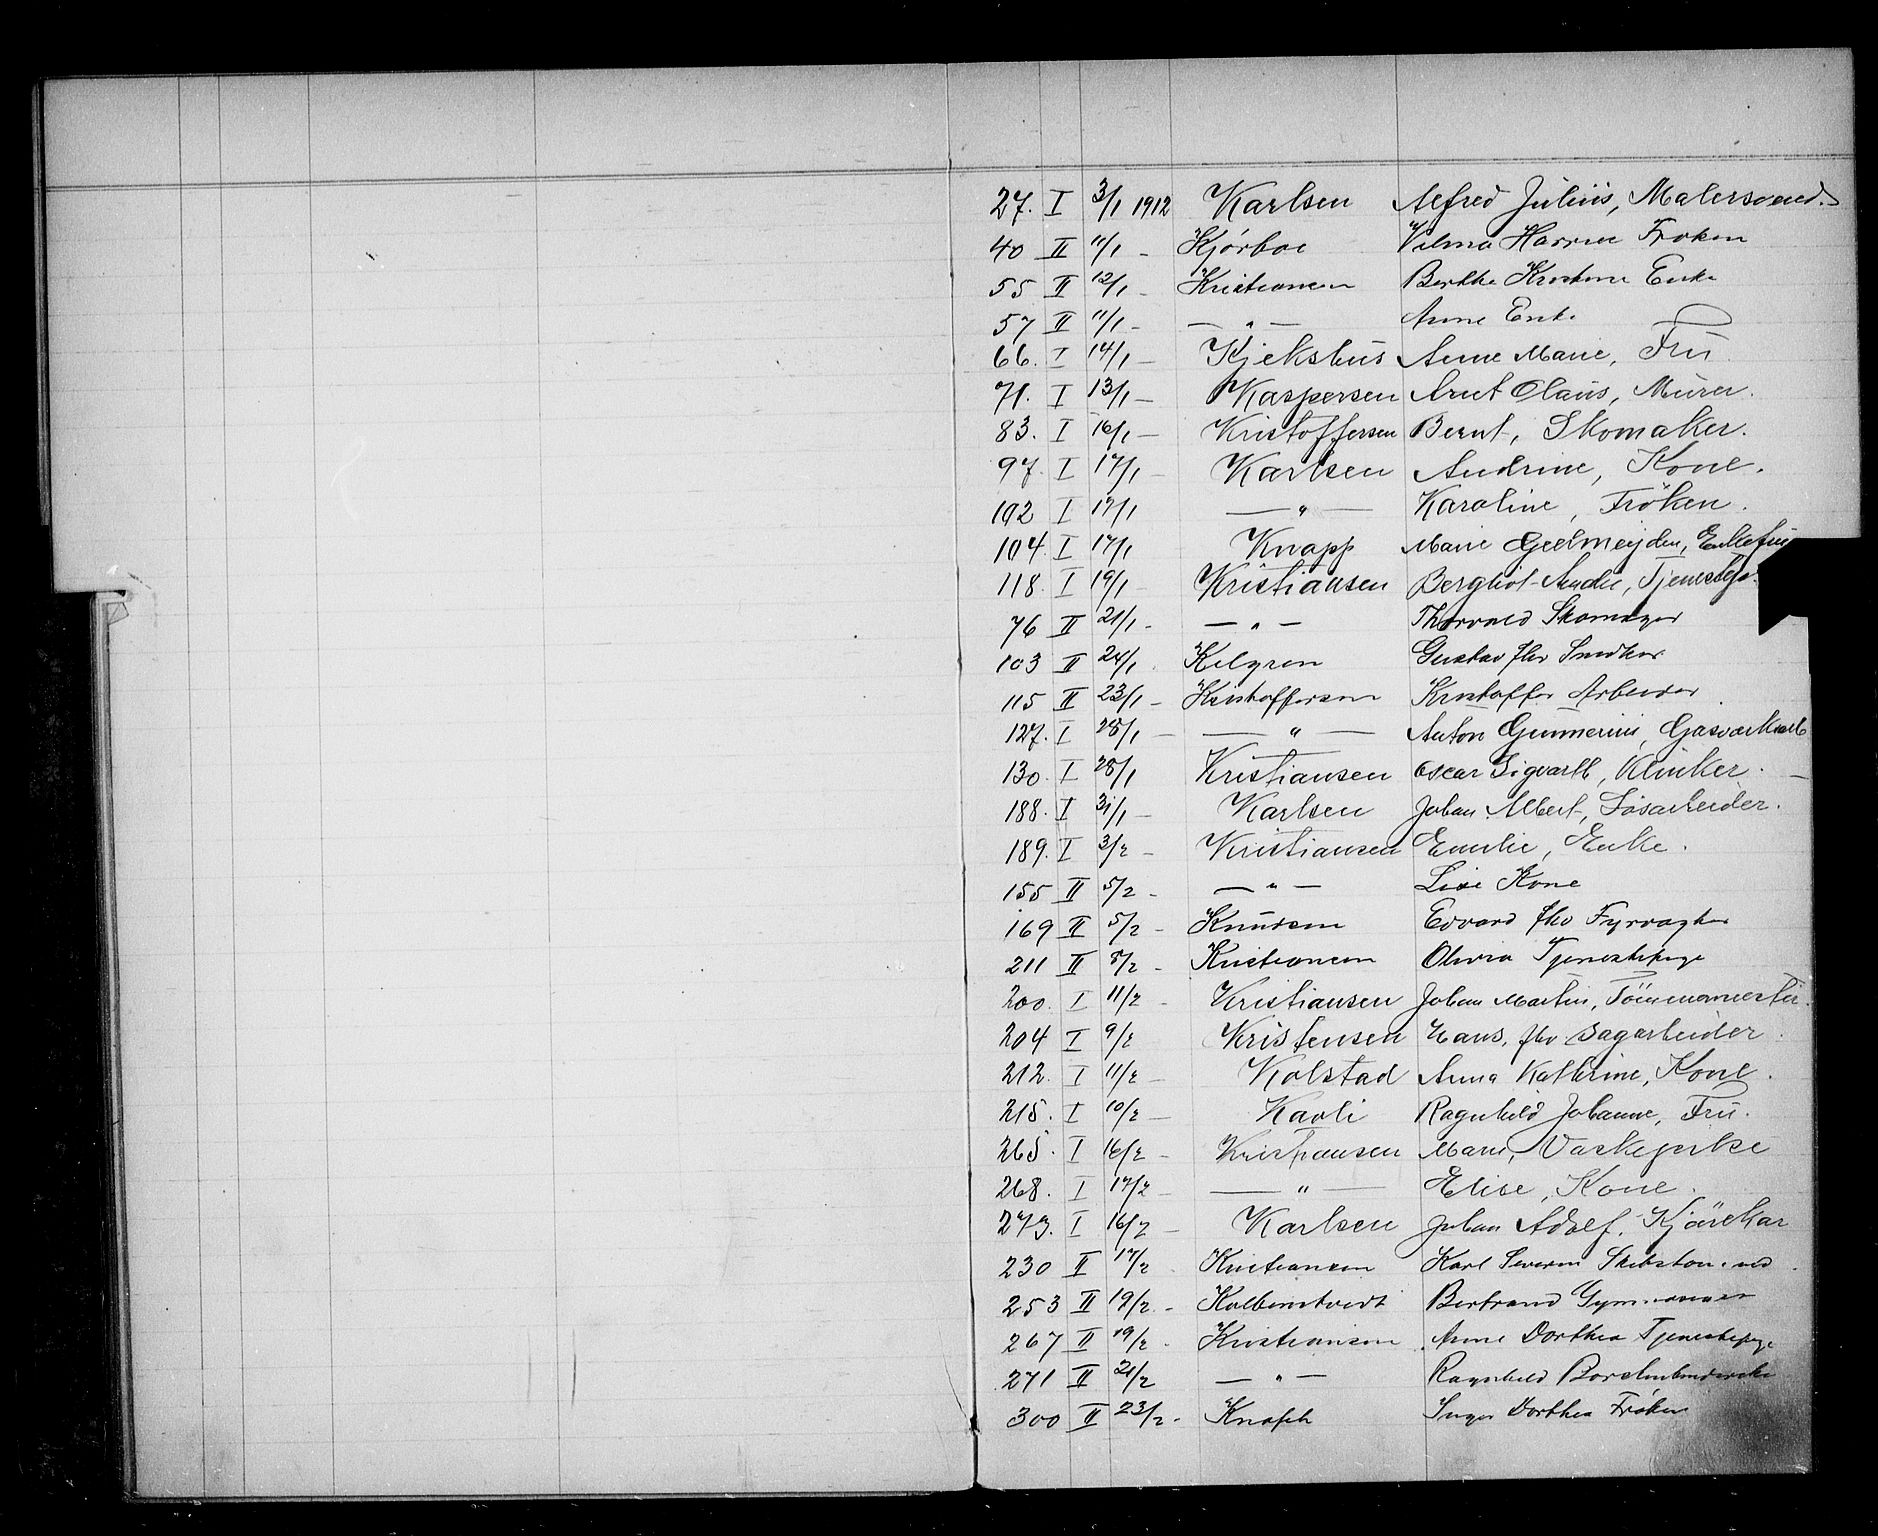 27. I 3/1 1912 Karlsen Alfred Julius, Malersvend.
40 II 11/1 - Kjörboe Vilma Frøken
55 II 12/1 - Kristiansen Berthe Kristine Enke
57 II 11/1 - — " — Anne Enke
66. I 14/1 — Kjekshus Anne Marie, Fru
71. I 13/1 — Kaspersen Arnt Olaus, Murer.
83. I 16/1 — Kristoffersen Bernt, Skomaker.
97. I 17/1 — Karlsen Andrine, Kone.
102 I 17/1 — " — Karoline, Fröken.
104. I 17/1 Knapp Marie Geelmeyden, Enkefru
118. I 19/1 - Kristiansen Bergliot Tjenestepi.
76 II 21/1 - — " — Thorvald Skomager
103 II 24/1 Kelgren Gustav fhv Snedker
115 II 23/1 - Kristoffersen Kristoffer Arbeider
127. I 28/1 — — " — Anton Gunnerius, Gasværks
130. I 28/1 Kristiansen Oscar Sigvart, Klinker.
188. I 31/1 — Karlsen Johan Albert, Løsarbeider.
189. I 3/2 - Kristiansen Emilie, Enke.
155 II 5/2 - — " — Lise Kone
169 II 5/2 - Knudsen Edvard fhv Fyrvogter
211 II 8/2 - Kristiansen Olivia Tjenestepige
200. I 11/2 - Kristiansen Johan Martin, Tömmermester.
204 I 9/2 Kristensen Hans, fhv. Sagarbeider.
212. I 11/2 — Kolstad Anna Kathrine, Kone.
215. I 10/2 — Karli Ragnhild Johanne, Fru.
265. I 16/2 - Kristiansen Marie, Vaskepike
268. I 17/2 — " — Elise, Kone.
273. I 16/2 — Karlsen Johan Adolf, Kjörekar
230 II 17/2 Kristiansen Karl Severin
253 II 19/2 - Kolbenstvedt Bertrand
267 II 19/2 - Kristiansen Anne Dorthea Tjenestepige
271 II 21/2 — " — Ragnhild
300 II 23/2 - Knoph Inger Dorthea Frøken